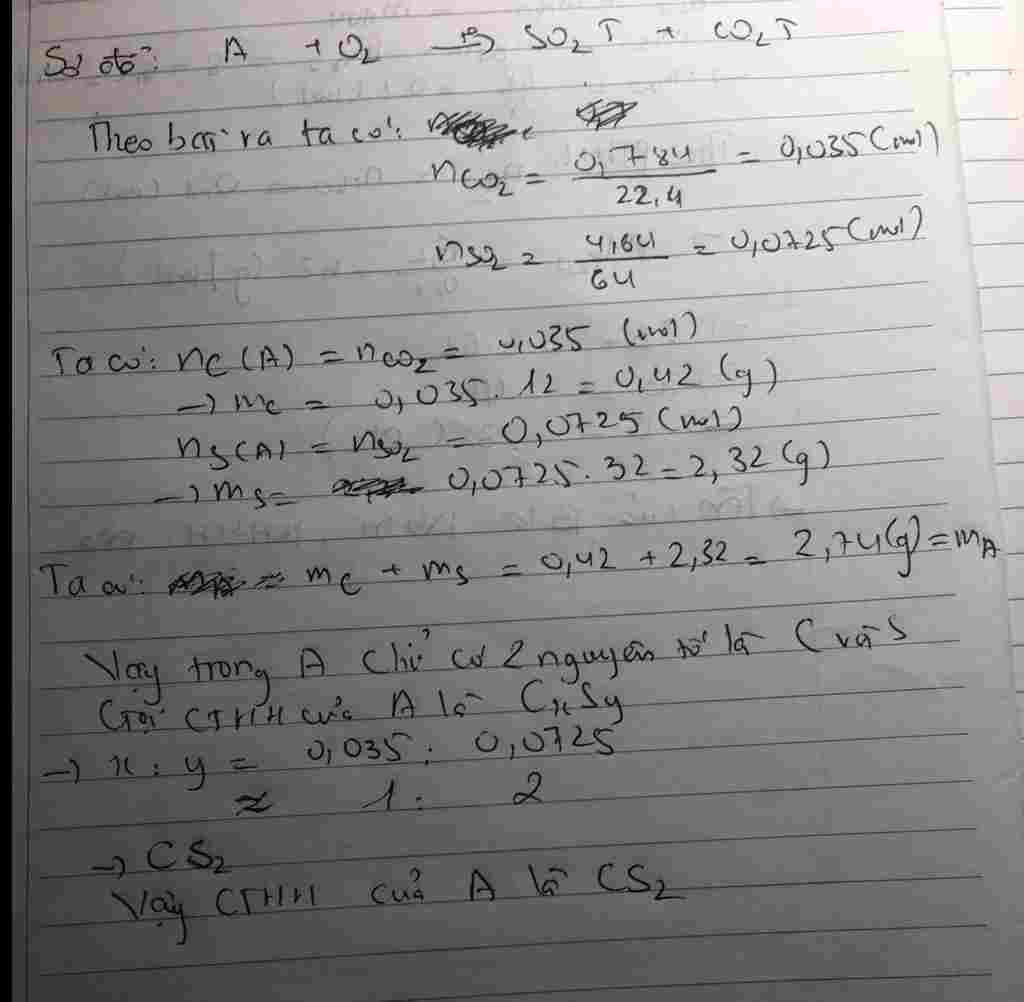 Sơ đồ: A + O₂ –t°→ SO₂↑ + CO₂↑
Theo bài ra ta có:
nCO₂ = 0,784/22,4 = 0,035 (mol)
nSO₂ = 4,64/64 = 0,0725 (mol)
Ta có: nC (A) = nCO₂ = 0,035 (mol)
→ mC = 0,035 . 12 = 0,42 (g)
nS (A) = nSO₂ = 0,0725 (mol)
→ mS = 0,0725 . 32 = 2,32 (g)
Ta có: mC + mS = 0,42 + 2,32 = 2,74 (g) = mA
Vậy trong A chỉ có 2 nguyên tố là C và S
Gọi CTHH của A là CxSy
→ x : y = 0,035 : 0,0725
≈ 1 : 2
→ CS₂
Vậy CTHH của A là CS₂